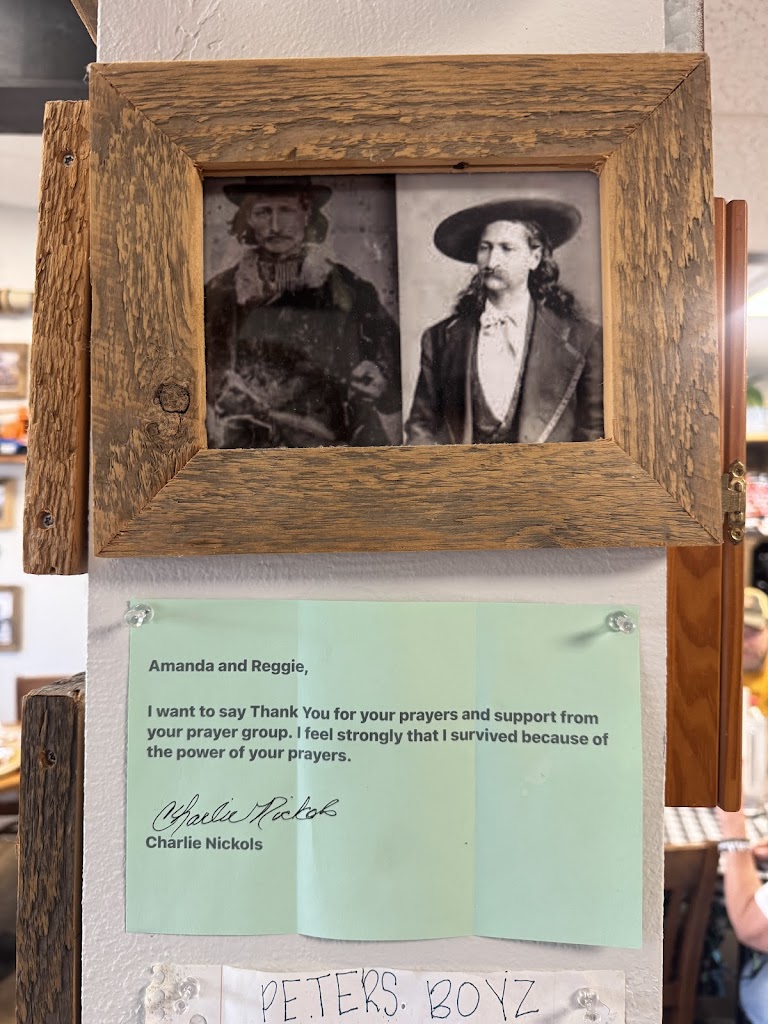 Amanda and Reggie,
I want to say Thank You for your prayers and support from
your prayer group. I feel strongly that I survived because of
the power of your prayers.
Charlie Nickols
Charlie Nickols
PETERS. BOYZ